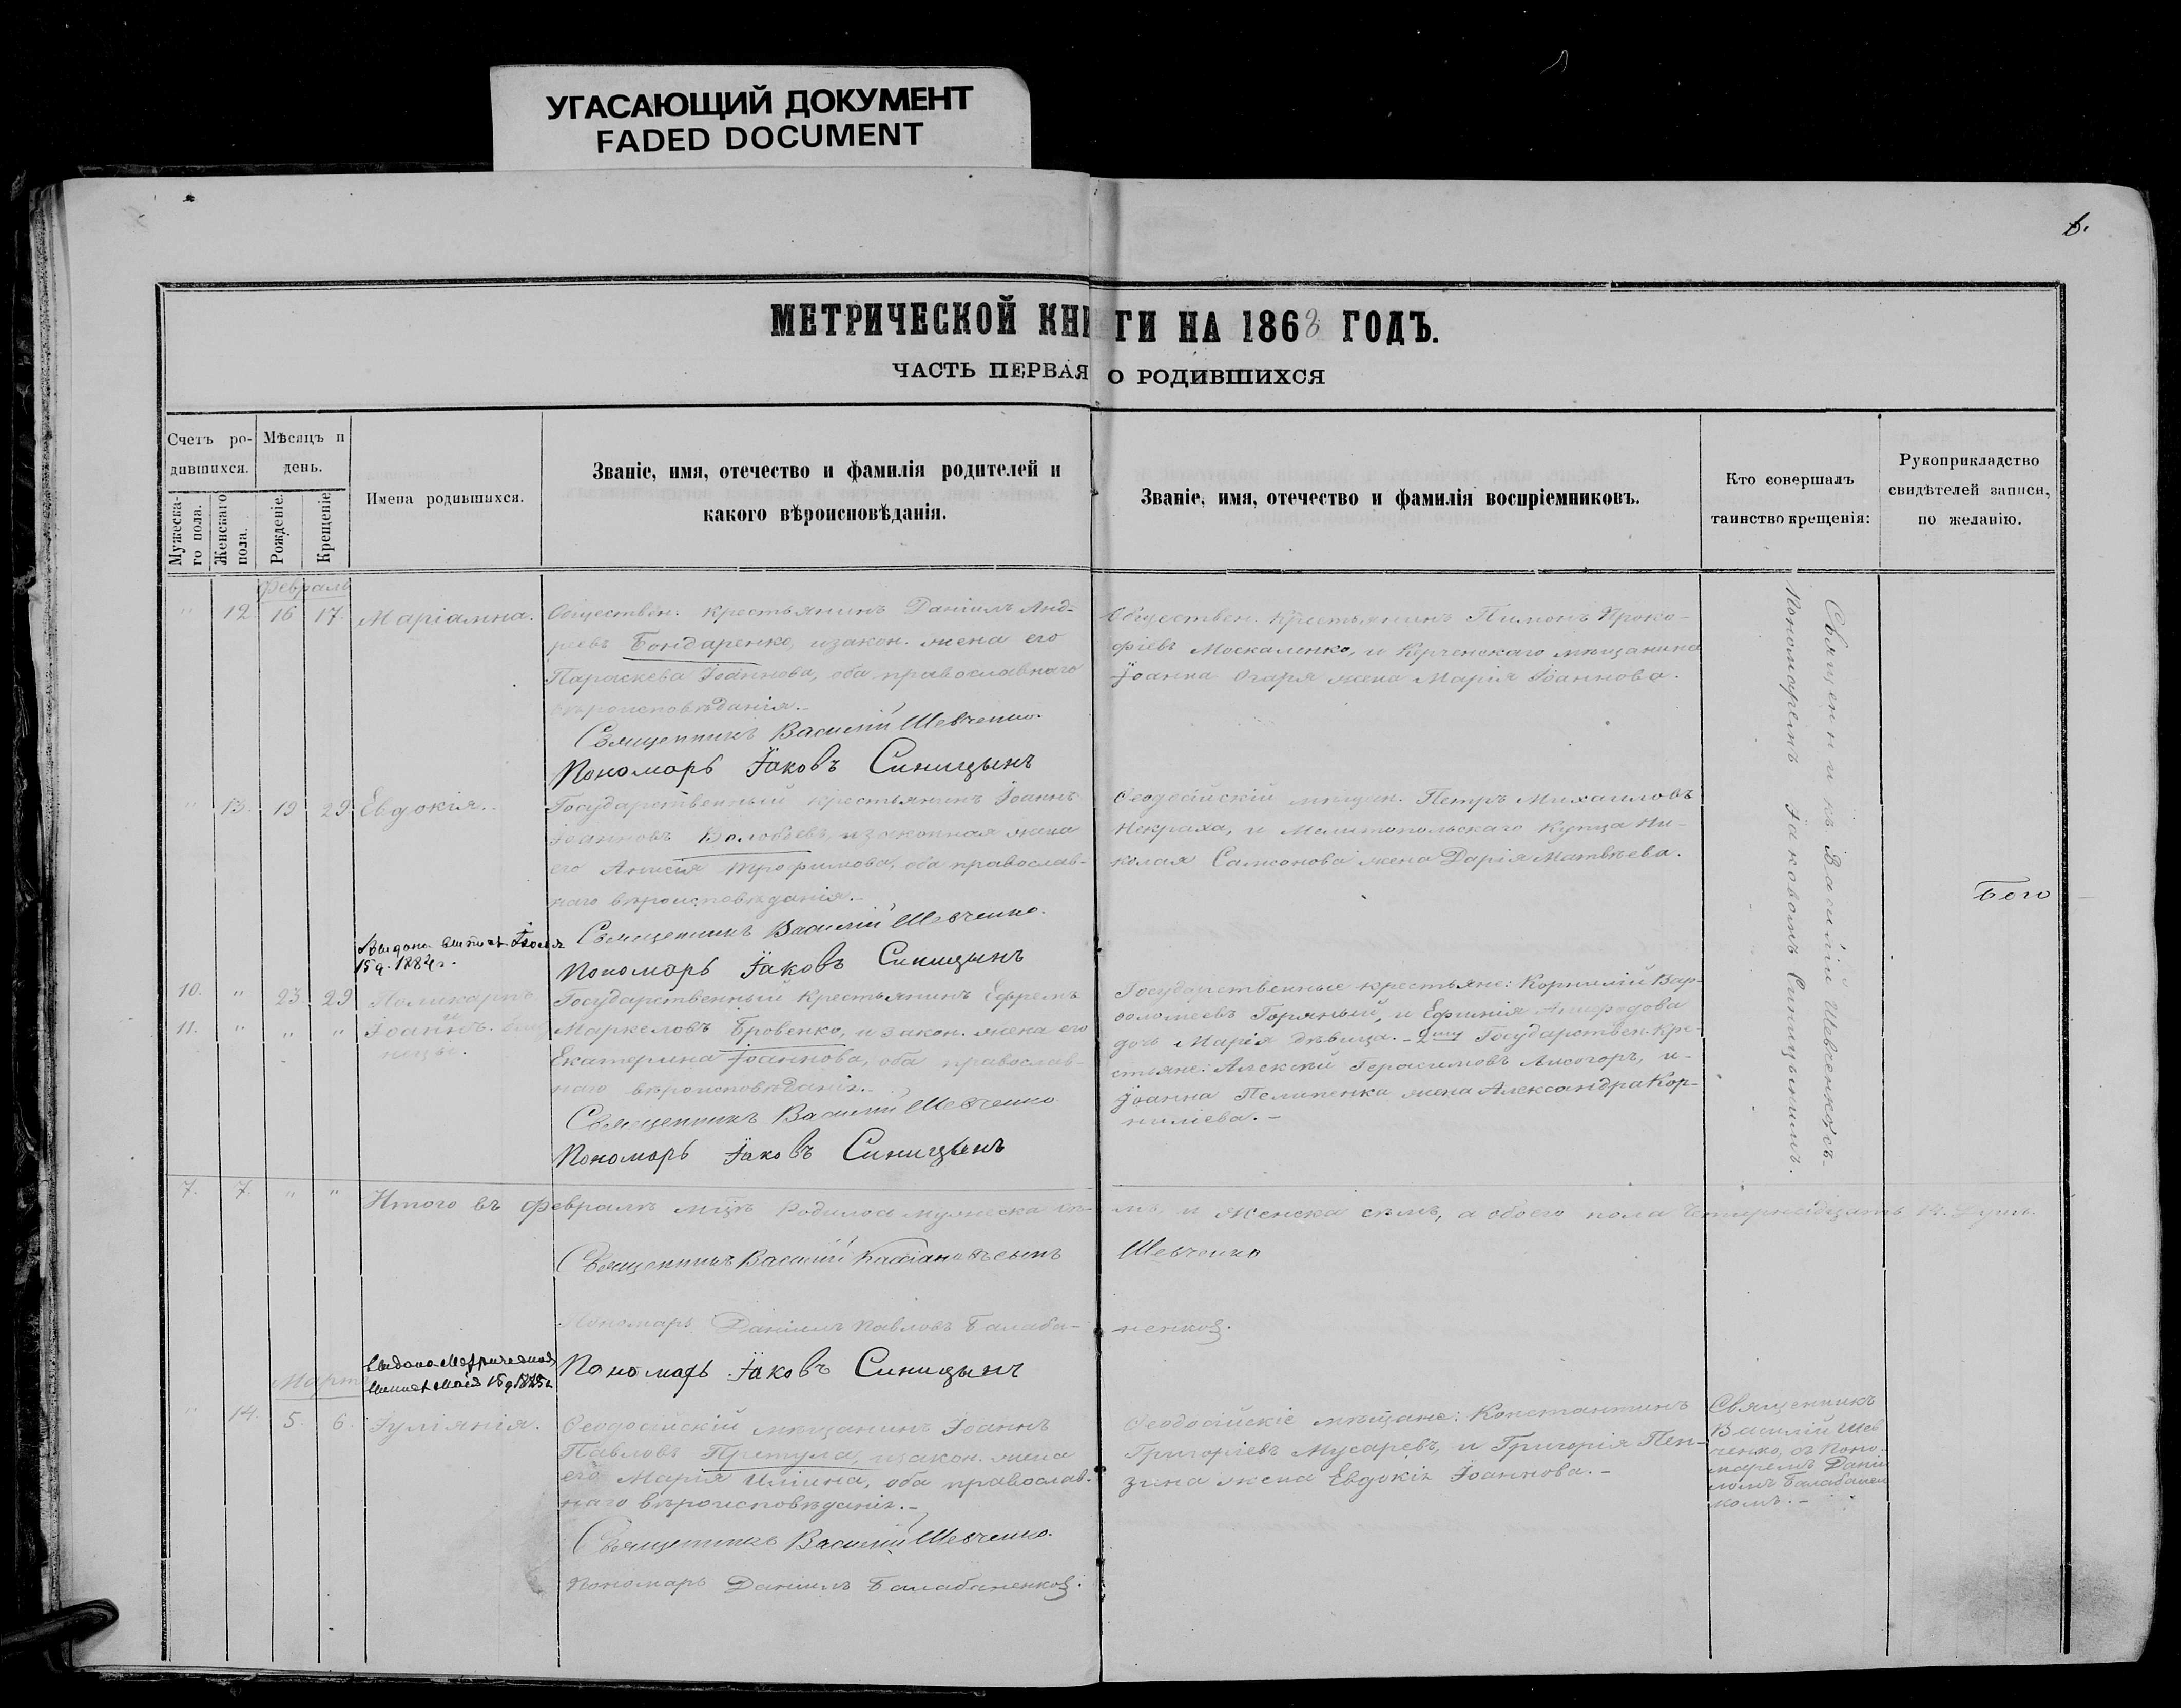 УГАСАЮЩИЙ ДОКУМЕНТ
FADED DOCUMENT
6.
МЕТРИЧЕСКОЙ КНИГИ НА 1868 ГОДЪ.
ЧАСТЬ ПЕРВАЯ О РОДИВШИХСЯ
Счетъ ро-
дившихся.
Мужеска-
го пола.
Женскаго
пола.
Мѣсяцъ и
день.
Рожденіе.
Крещеніе.
Имена родившихся.
Званіе, имя, отечество и фамилія родителей и
какого вѣроисповѣданія.
Званіе, имя, отечество и фамилія воспріемниковъ.
Кто совершалъ
таинство крещенія:
Рукоприкладство
свидѣтелей записи,
по желанію.
Февраль
" 12. 16 17. Маріамна.
Обществен. крестьянинъ Даніилъ Анд-
реевъ Бондаренко, и закон. жена его
Параскева Іоаннова, оба православнаго
вѣроисповѣданія.-
Священникъ Василій Шевченко.
Пономарь Іаковъ Синицынъ
Обществен. крестьянинъ Пимонъ Проко-
фіевъ Москаленко, и Керченскаго мѣщанина
Іоанна Огаря жена Марія Іоаннова.
Священникъ Василій Шевченко, съ
Пономаремъ Іаковомъ Синицынымъ.
" 13. 19 29 Евдокія.
Государственный крестьянинъ Іоаннъ
Іоанновъ Воловьевъ, и законная жена
его Анисія Трофимова, оба православ-
наго вѣроисповѣданія.-
Священникъ Василій Шевченко.
Пономарь Іаковъ Синицынъ
Ѳеодосійскій мѣщан. Петръ Михаиловъ
Некраха, и Мелитопольскаго Купца Ни-
колая Самсонова жена Дарія Матвѣева.
15 д. 1884 г.
10. " 23. 29 Поликарпъ
11. " " " и Іоаннъ. близ
нецы.
Государственный крестьянинъ Ефремъ
Маркеловъ Бровенко, и закон. жена его
Екатерина Іоаннова, оба православ-
наго вѣроисповѣданія.-
Священникъ Василій Шевченко
Пономарь Іаковъ Синицынъ
Государственные крестьяне: Корнилій Вар-
ѳоломеевъ Горяный, и Ефимія
дочь Марія дѣвица. - 2му Государствен. кре-
стьяне: Алексѣй Герасимовъ Лисогоръ, и
Іоанна Пелипенка жена Александра Кор-
нилiева. -
7. 7. " " Итого въ Февралѣ мцѣ родилось мужеска семь и женска семь, а обоего пола четырнадцать 14. душъ.
Священникъ Василій Кассіановъ сынъ Шевченко
Пономарь Даніилъ Павловъ Балаба- ненковъ.
Пономарь Іаковъ Синицынъ
Выдана Метрическая
Мартъ
" 14. 5. 6. Іуліанія.
Ѳеодосійскій мѣщанинъ Іоаннъ
Павловъ Притула, и закон. жена
его Марія Иліина, оба православ-
наго вѣроисповѣданія.-
Священникъ Василій Шевченко.
Пономарь Даніилъ Балабаненковъ.
Ѳеодосійскіе мѣщане: Константинъ
Григоріевъ Мусаревъ, и Григорія Пен-
зина жена Евдокія Іоаннова. -
Священникъ
Василій Шев
ченко, съ Поно-
маремъ Дани
ломъ Балабанен
комъ. -